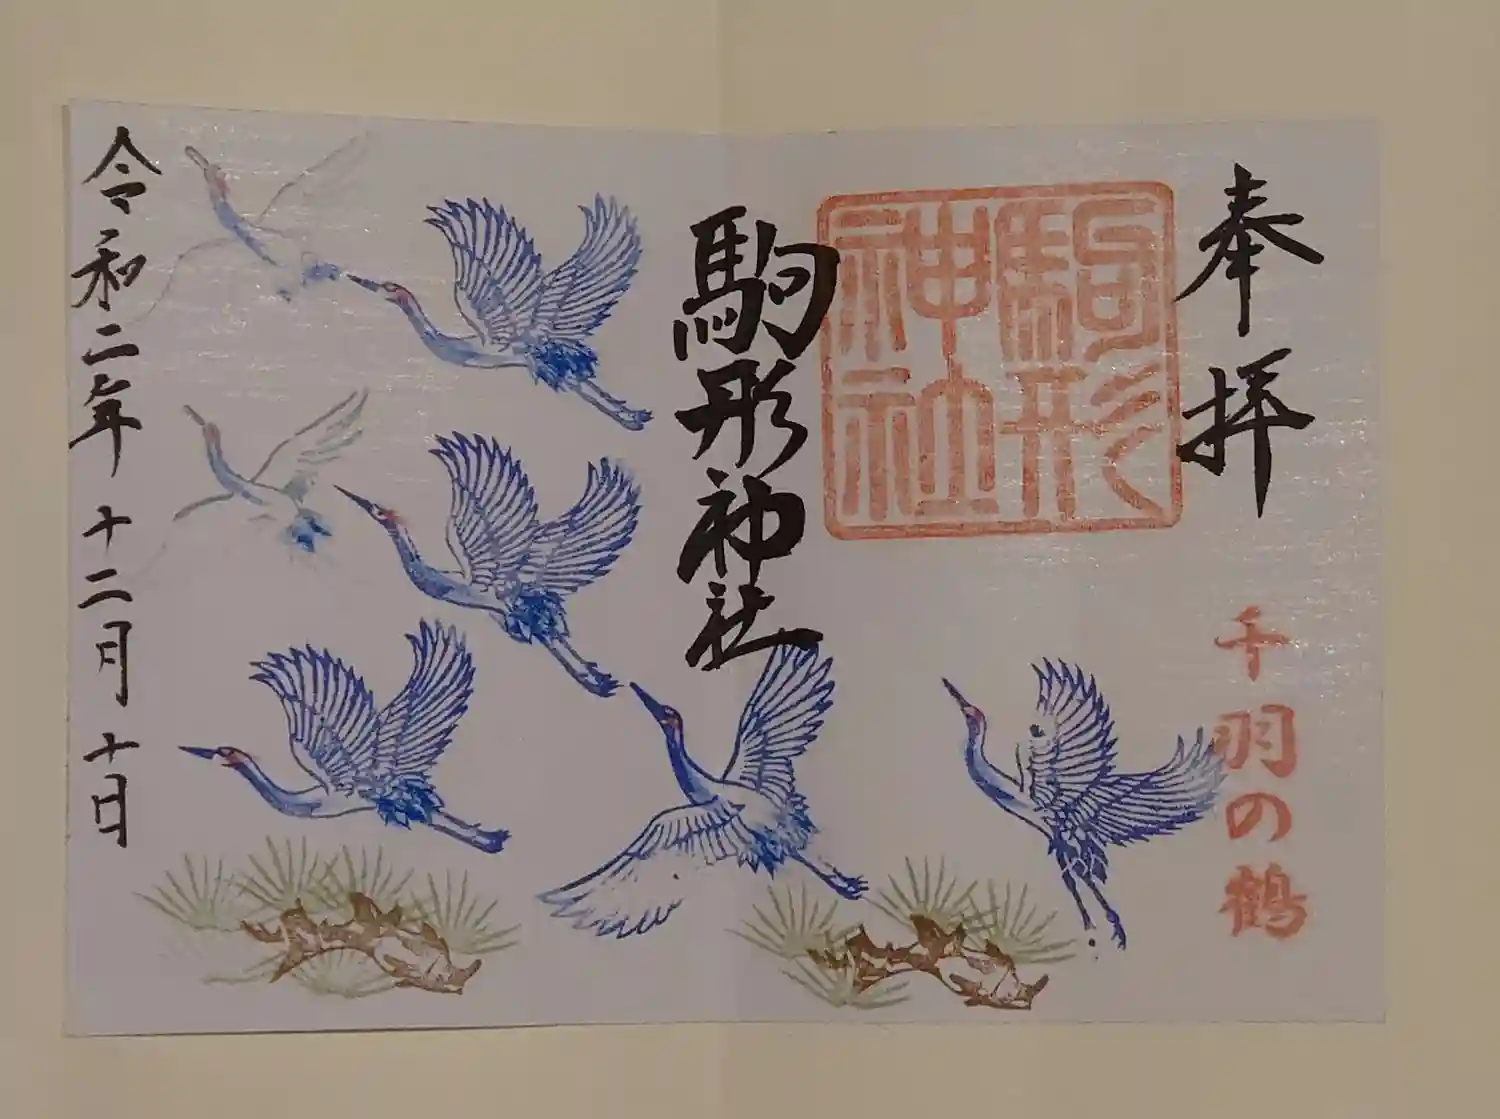 奉拝
千羽の鶴
駒形
神社
駒形神社
令和二年十二月十日